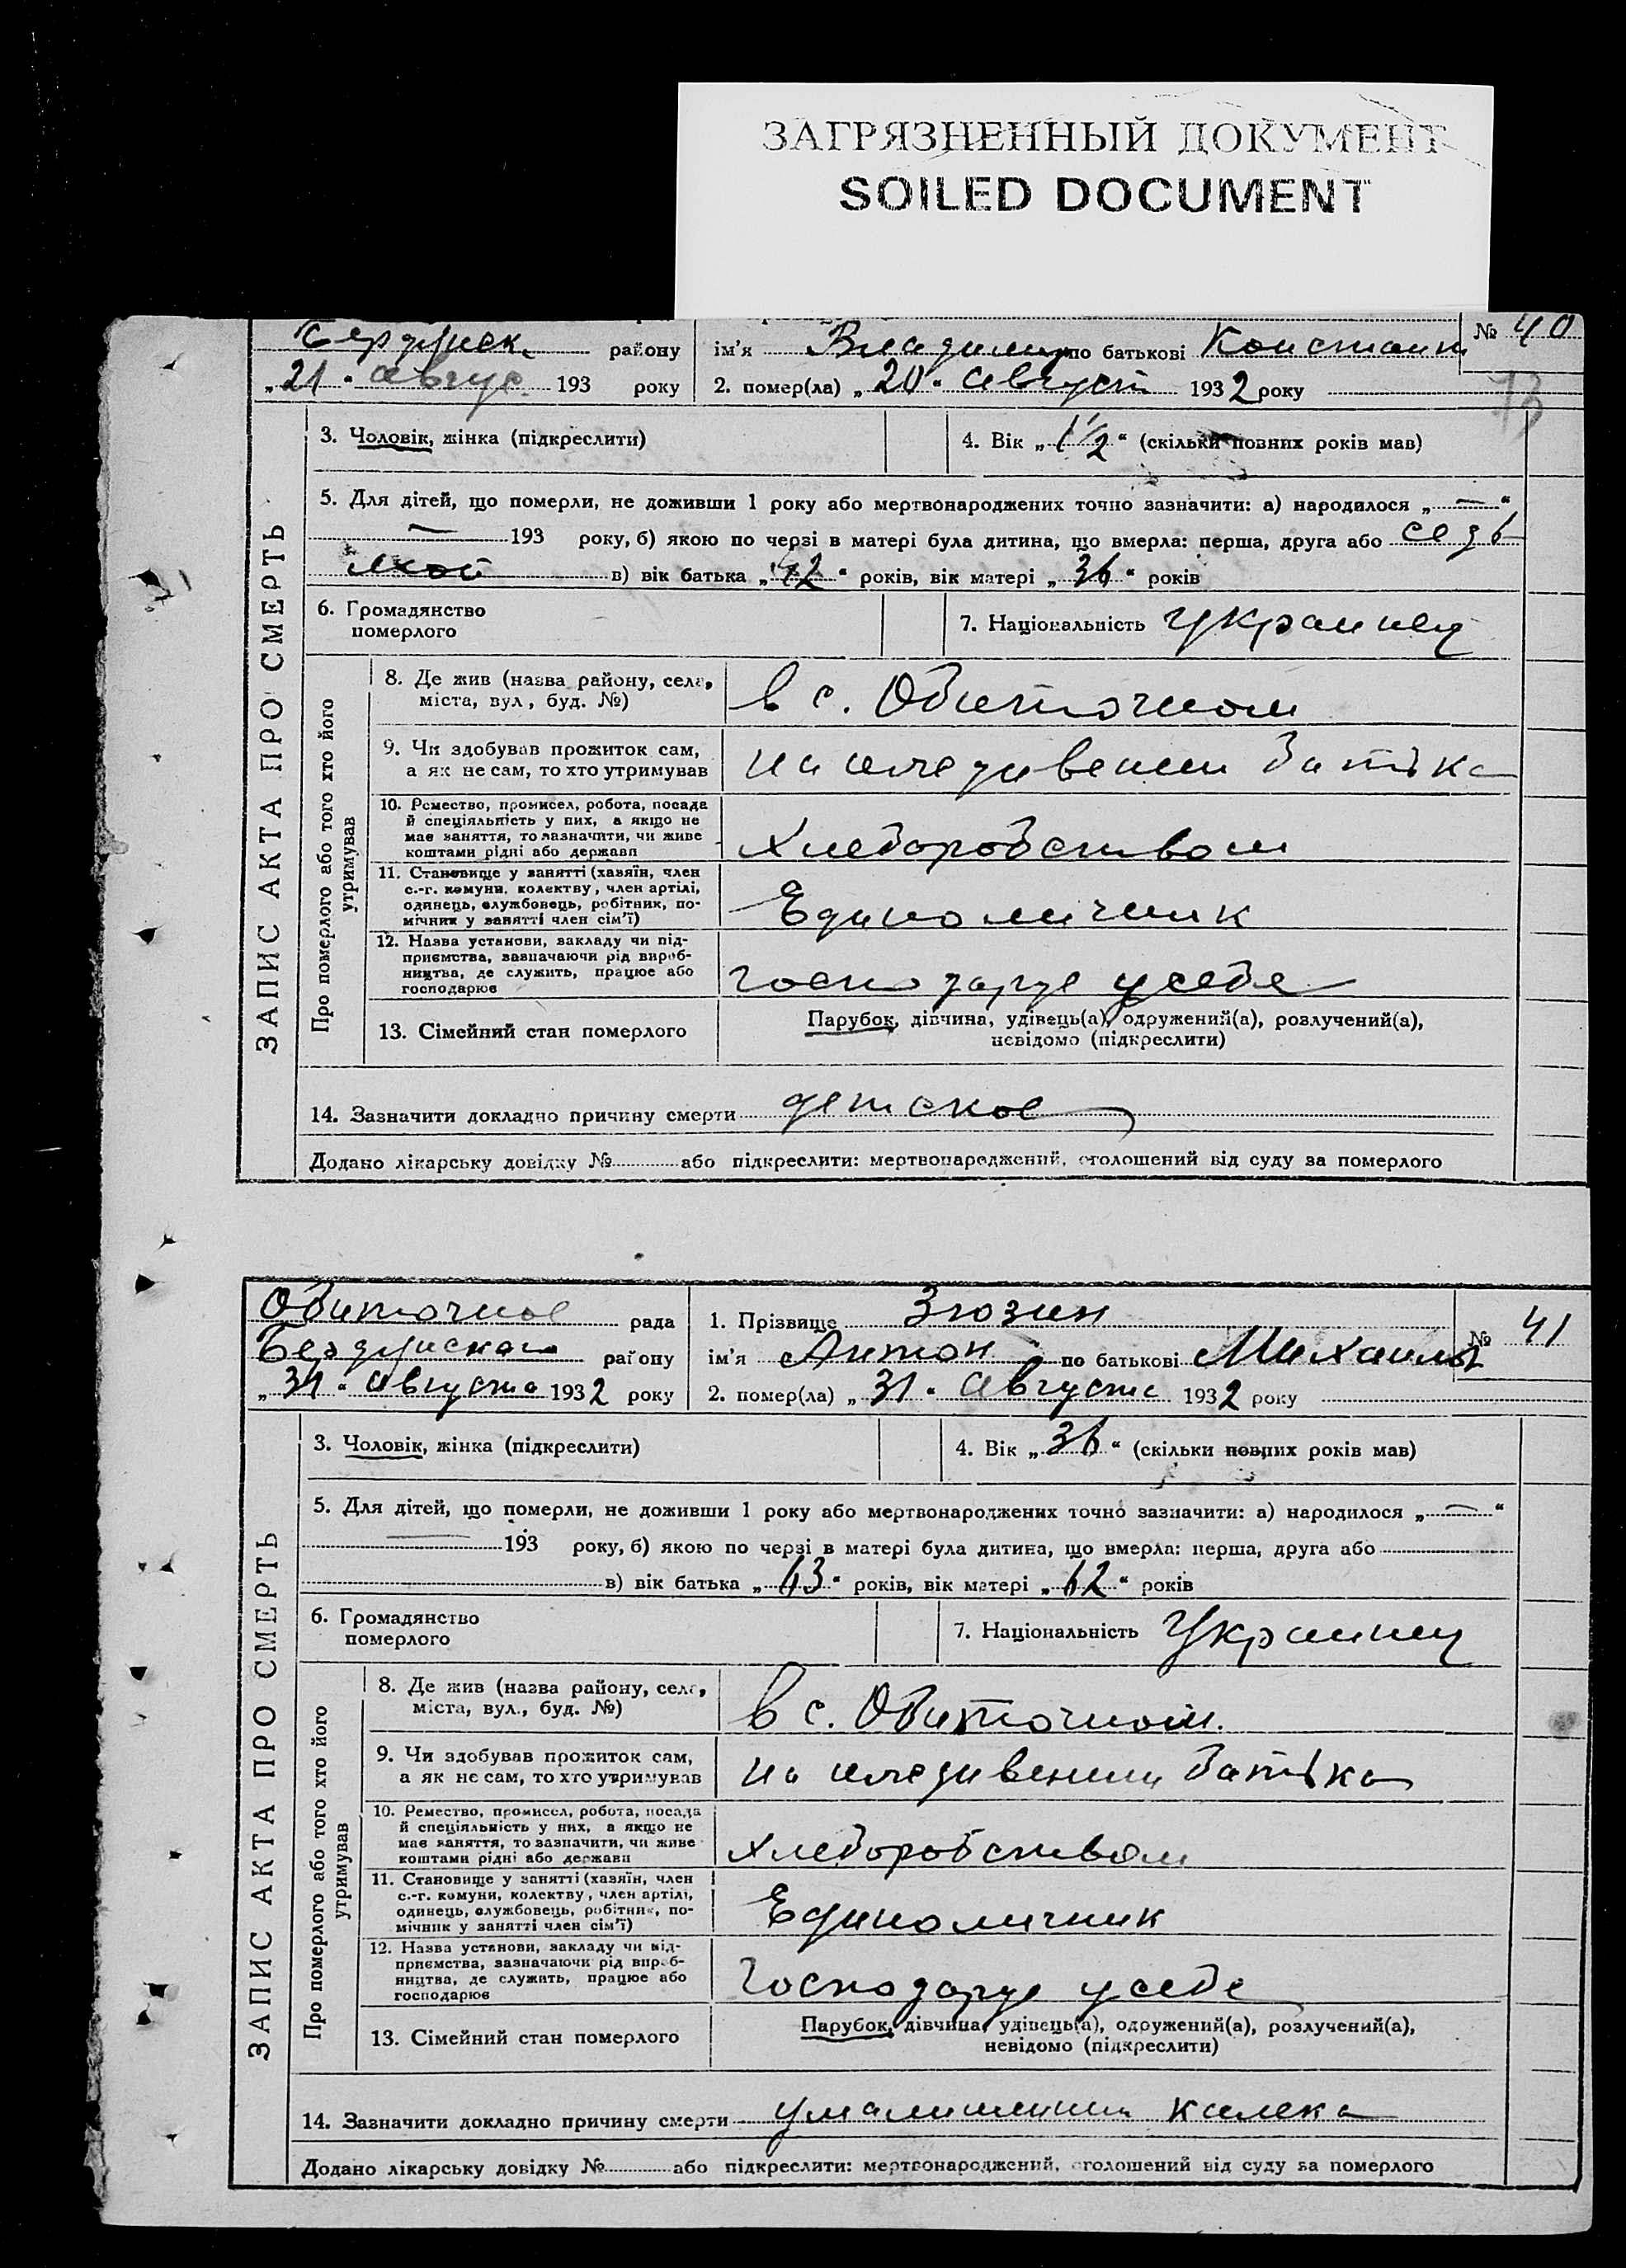 ЗАГРЯЗНЕННЫЙ ДОКУМЕНТ
SOILED DOCUMENT
району ім’я Владимир по батькові Констант № 40
„21“ август 193 року 2. помер(ла) „20“ август 1932 року
ЗАПИС АКТА ПРО СМЕРТЬ
3. Чоловік, жінка (підкреслити) 4. Вік „1 1/2“ (скільки повних років мав)
5. Для дітей, що померли, не доживши 1 року або мертвонароджених точно зазначити: а) народилося „—“
— 193 року, б) якою по черзі в матері була дитина, що вмерла: перша, друга або седь
мой в) вік батька „42“ років, вік матері „36“ років
6. Громадянство
померлого
7. Національність Украинец
Про померлого або того хто його
утримував
8. Де жив (назва району, села,
міста, вул, буд. №)
в с. Обиточном
9. Чи здобував прожиток сам,
а як не сам, то хто утримував
на иждивении батька
10. Ремество, промисел, робота, посада
й спеціяльність у них, а якщо не
має заняття, то зазначити, чи живе
коштами рідні або держави
Хлеборобством
11. Становище у занятті (хазяїн, член
с.-г. комуни, колективу, член артілі,
одинець, службовець, робітник, по-
мічник у занятті член сім’ї)
Единоличник
12. Назва установи, закладу чи під-
приємства, зазначаючи рід вироб-
ництва, де служить, працює або
господарює
господарує у себе
13. Сімейний стан померлого
Парубок, дівчина, удівець(а), одружений(а), розлучений(а),
невідомо (підкреслити)
14. Зазначити докладно причину смерти детское
Додано лікарську довідку № або підкреслити: мертвонароджений, оголошений від суду за померлого
Обиточное рада 1. Прізвище Зюзин № 41
Бердянского району ім’я Антон по батькові Михаилов
„31“ августа 1932 року 2. помер(ла) „31“ августа 1932 року
ЗАПИС АКТА ПРО СМЕРТЬ
3. Чоловік, жінка (підкреслити) 4. Вік „36“ (скільки повних років мав)
5. Для дітей, що померли, не доживши 1 року або мертвонароджених точно зазначити: а) народилося „—“
— 193 року, б) якою по черзі в матері була дитина, що вмерла: перша, друга або
в) вік батька „63“ років, вік матері „62“ років
6. Громадянство
померлого
7. Національність Украинец
Про померлого або того хто його
утримував
8. Де жив (назва району, села,
міста, вул., буд. №)
в с. Обиточном.
9. Чи здобував прожиток сам,
а як не сам, то хто утримував
на иждивении батька
10. Ремество, промисел, робота, посада
й спеціяльність у них, а якщо не
має заняття, то зазначити, чи живе
коштами рідні або держави
хлеборобством
11. Становище у занятті (хазяїн, член
с.-г. комуни, колективу, член артілі,
одинець, службовець, робітник, по-
мічник у занятті член сім’ї)
Единоличник
12. Назва установи, закладу чи під-
приємства, зазначаючи рід вироб-
ництва, де служить, працює або
господарює
Господарує у себе
13. Сімейний стан померлого
Парубок, дівчина, удівець(а), одружений(а), розлучений(а),
невідомо (підкреслити)
14. Зазначити докладно причину смерти калека
Додано лікарську довідку № або підкреслити: мертвонароджений, оголошений від суду за померлого